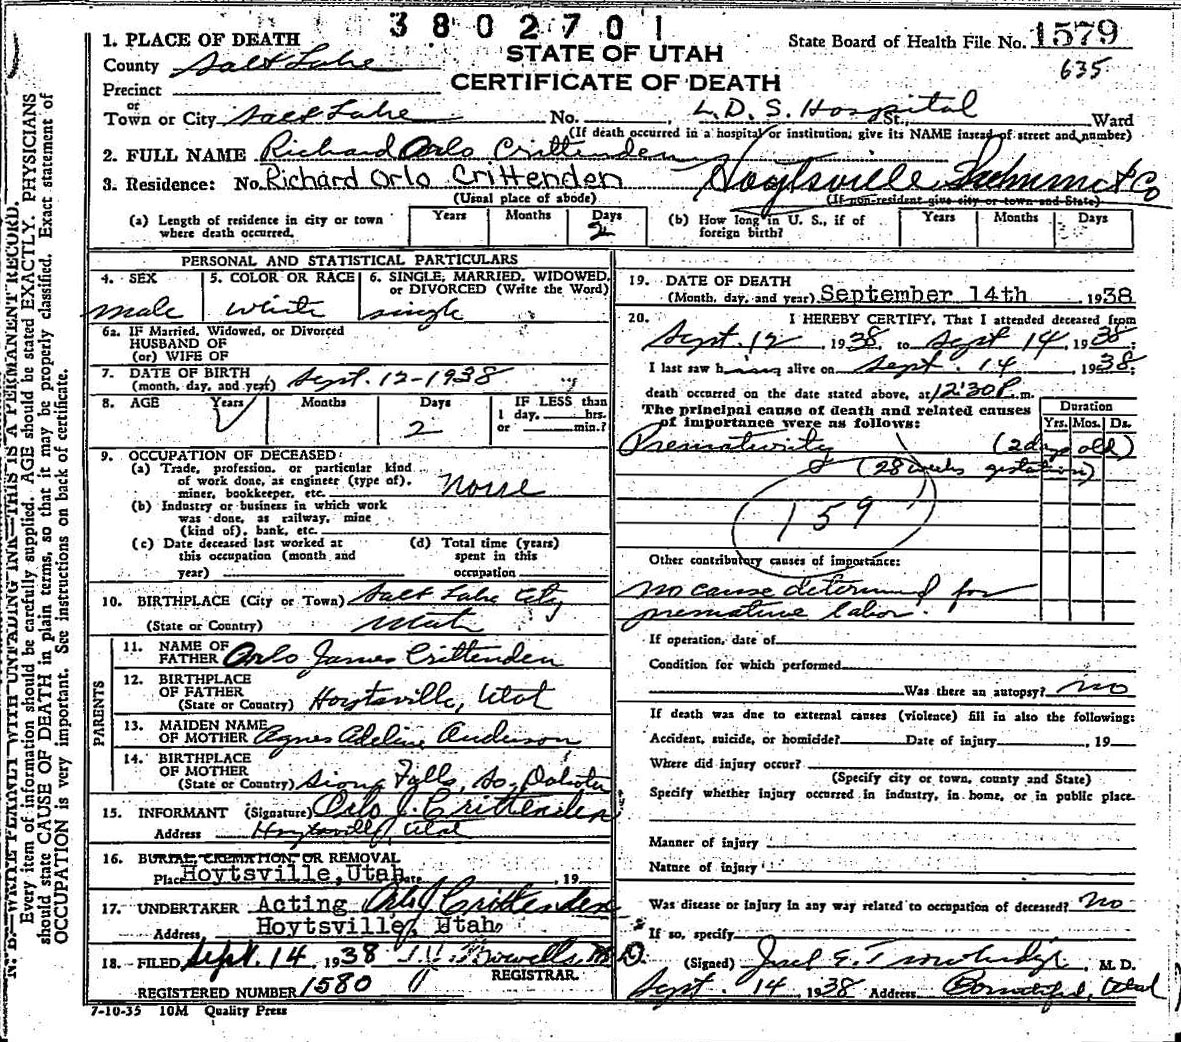 3802701
1579
State Board of Health File No.
635
STATE OF UTAH
CERTIFICATE OF DEATH
1. PLACE OF DEATH
County Salt Lake
Precinct
or
Town or City Salt Lake No. L.D.S. Hospital St., Ward
(If death occurred in a hospital or institution, give its NAME instead of street and number)
2. FULL NAME Richard Orlo Crittenden
3. Residence: No. Richard Orlo Crittenden Hoytsville, Summit Co
(Usual place of abode) (If non-resident give city or town and State)
(a) Length of residence in city or town where death occurred. Years Months Days 2
(b) How long in U. S., if of foreign birth? Years Months Days
PERSONAL AND STATISTICAL PARTICULARS
4. SEX male
5. COLOR OR RACE White
6. SINGLE, MARRIED, WIDOWED, or DIVORCED (Write the Word) single
6a. IF Married, Widowed, or Divorced
HUSBAND OF
(or) WIFE OF
7. DATE OF BIRTH
(month, day, and year) Sept. 12-1938
8. AGE Years Months Days 2 IF LESS than
1 day, hrs.
or min.?
9. OCCUPATION OF DECEASED:
(a) Trade, profession, or particular kind
of work done, as engineer (type of),
miner, bookkeeper, etc. None
(b) Industry or business in which work
was done, as railway, mine
(kind of), bank, etc.
(c) Date deceased last worked at
this occupation (month and
year)
(d) Total time (years)
spent in this
occupation
10. BIRTHPLACE (City or Town) Salt Lake City
(State or Country) Utah
PARENTS
11. NAME OF
FATHER Orlo James Crittenden
12. BIRTHPLACE
OF FATHER
(State or Country) Hoytsville, Utah
13. MAIDEN NAME
OF MOTHER Agnes Adeline Anderson
14. BIRTHPLACE
OF MOTHER
(State or Country) Sioux Falls, So. Dakota
15. INFORMANT (Signature) Orlo J. Crittenden
Address Hoytsville, Utah
16. BURIAL, CREMATION OR REMOVAL
Place Hoytsville, Utah Date , 19
17. UNDERTAKER Acting Orlo J Crittenden
Address Hoytsville, Utah
18. FILED Sept. 14 1938 M.D.
REGISTRAR.
REGISTERED NUMBER 1580
7-10-35 10M Quality Press
19. DATE OF DEATH
(Month, day, and year) September 14th , 1938
20. I HEREBY CERTIFY, That I attended deceased from
Sept. 12, 1938, to Sept 14, 1938;
I last saw him alive on Sept. 14 1938;
death occurred on the date stated above, at 12:30 P. m.
The principal cause of death and related causes
of importance were as follows:
Duration
Yrs. Mos. Ds.
Prematurity (2 days old)
(28 weeks gestation)
159
Other contributory causes of importance:
no cause determined for
premature labor.
If operation, date of
Condition for which performed
Was there an autopsy? no
If death was due to external causes (violence) fill in also the following:
Accident, suicide, or homicide? Date of injury , 19
Where did injury occur?
(Specify city or town, county and State)
Specify whether injury occurred in industry, in home, or in public place.
Manner of injury
Nature of injury
Was disease or injury in any way related to occupation of deceased? No
If so, specify
(Signed) E. Trowbridge, M. D.
Sept. 14 1938 Address Bountiful, Utah
N. B.—WRITE PLAINLY WITH UNFADING INK—THIS IS A PERMANENT RECORD.
Every item of information should be carefully supplied. AGE should be stated EXACTLY. PHYSICIANS
should state CAUSE OF DEATH in plain terms, so that it may be properly classified. Exact statement of
OCCUPATION is very important. See instructions on back of certificate.